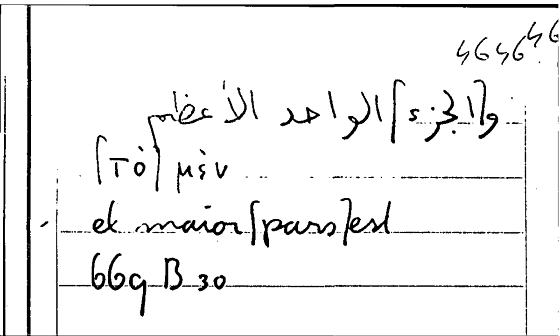 464646
و[الجزء] الواحد الأعظم
[τὸ] μὲν
et maior [pars] est
669 B 30